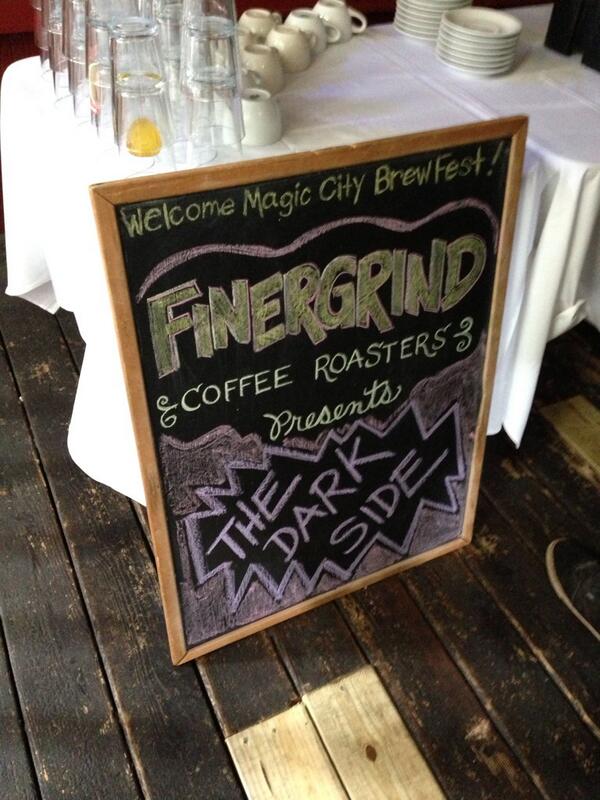 Welcome Magic City BrewFest!
FINERGRIND
COFFEE ROASTERS
Presents
THE
DARK
SIDE